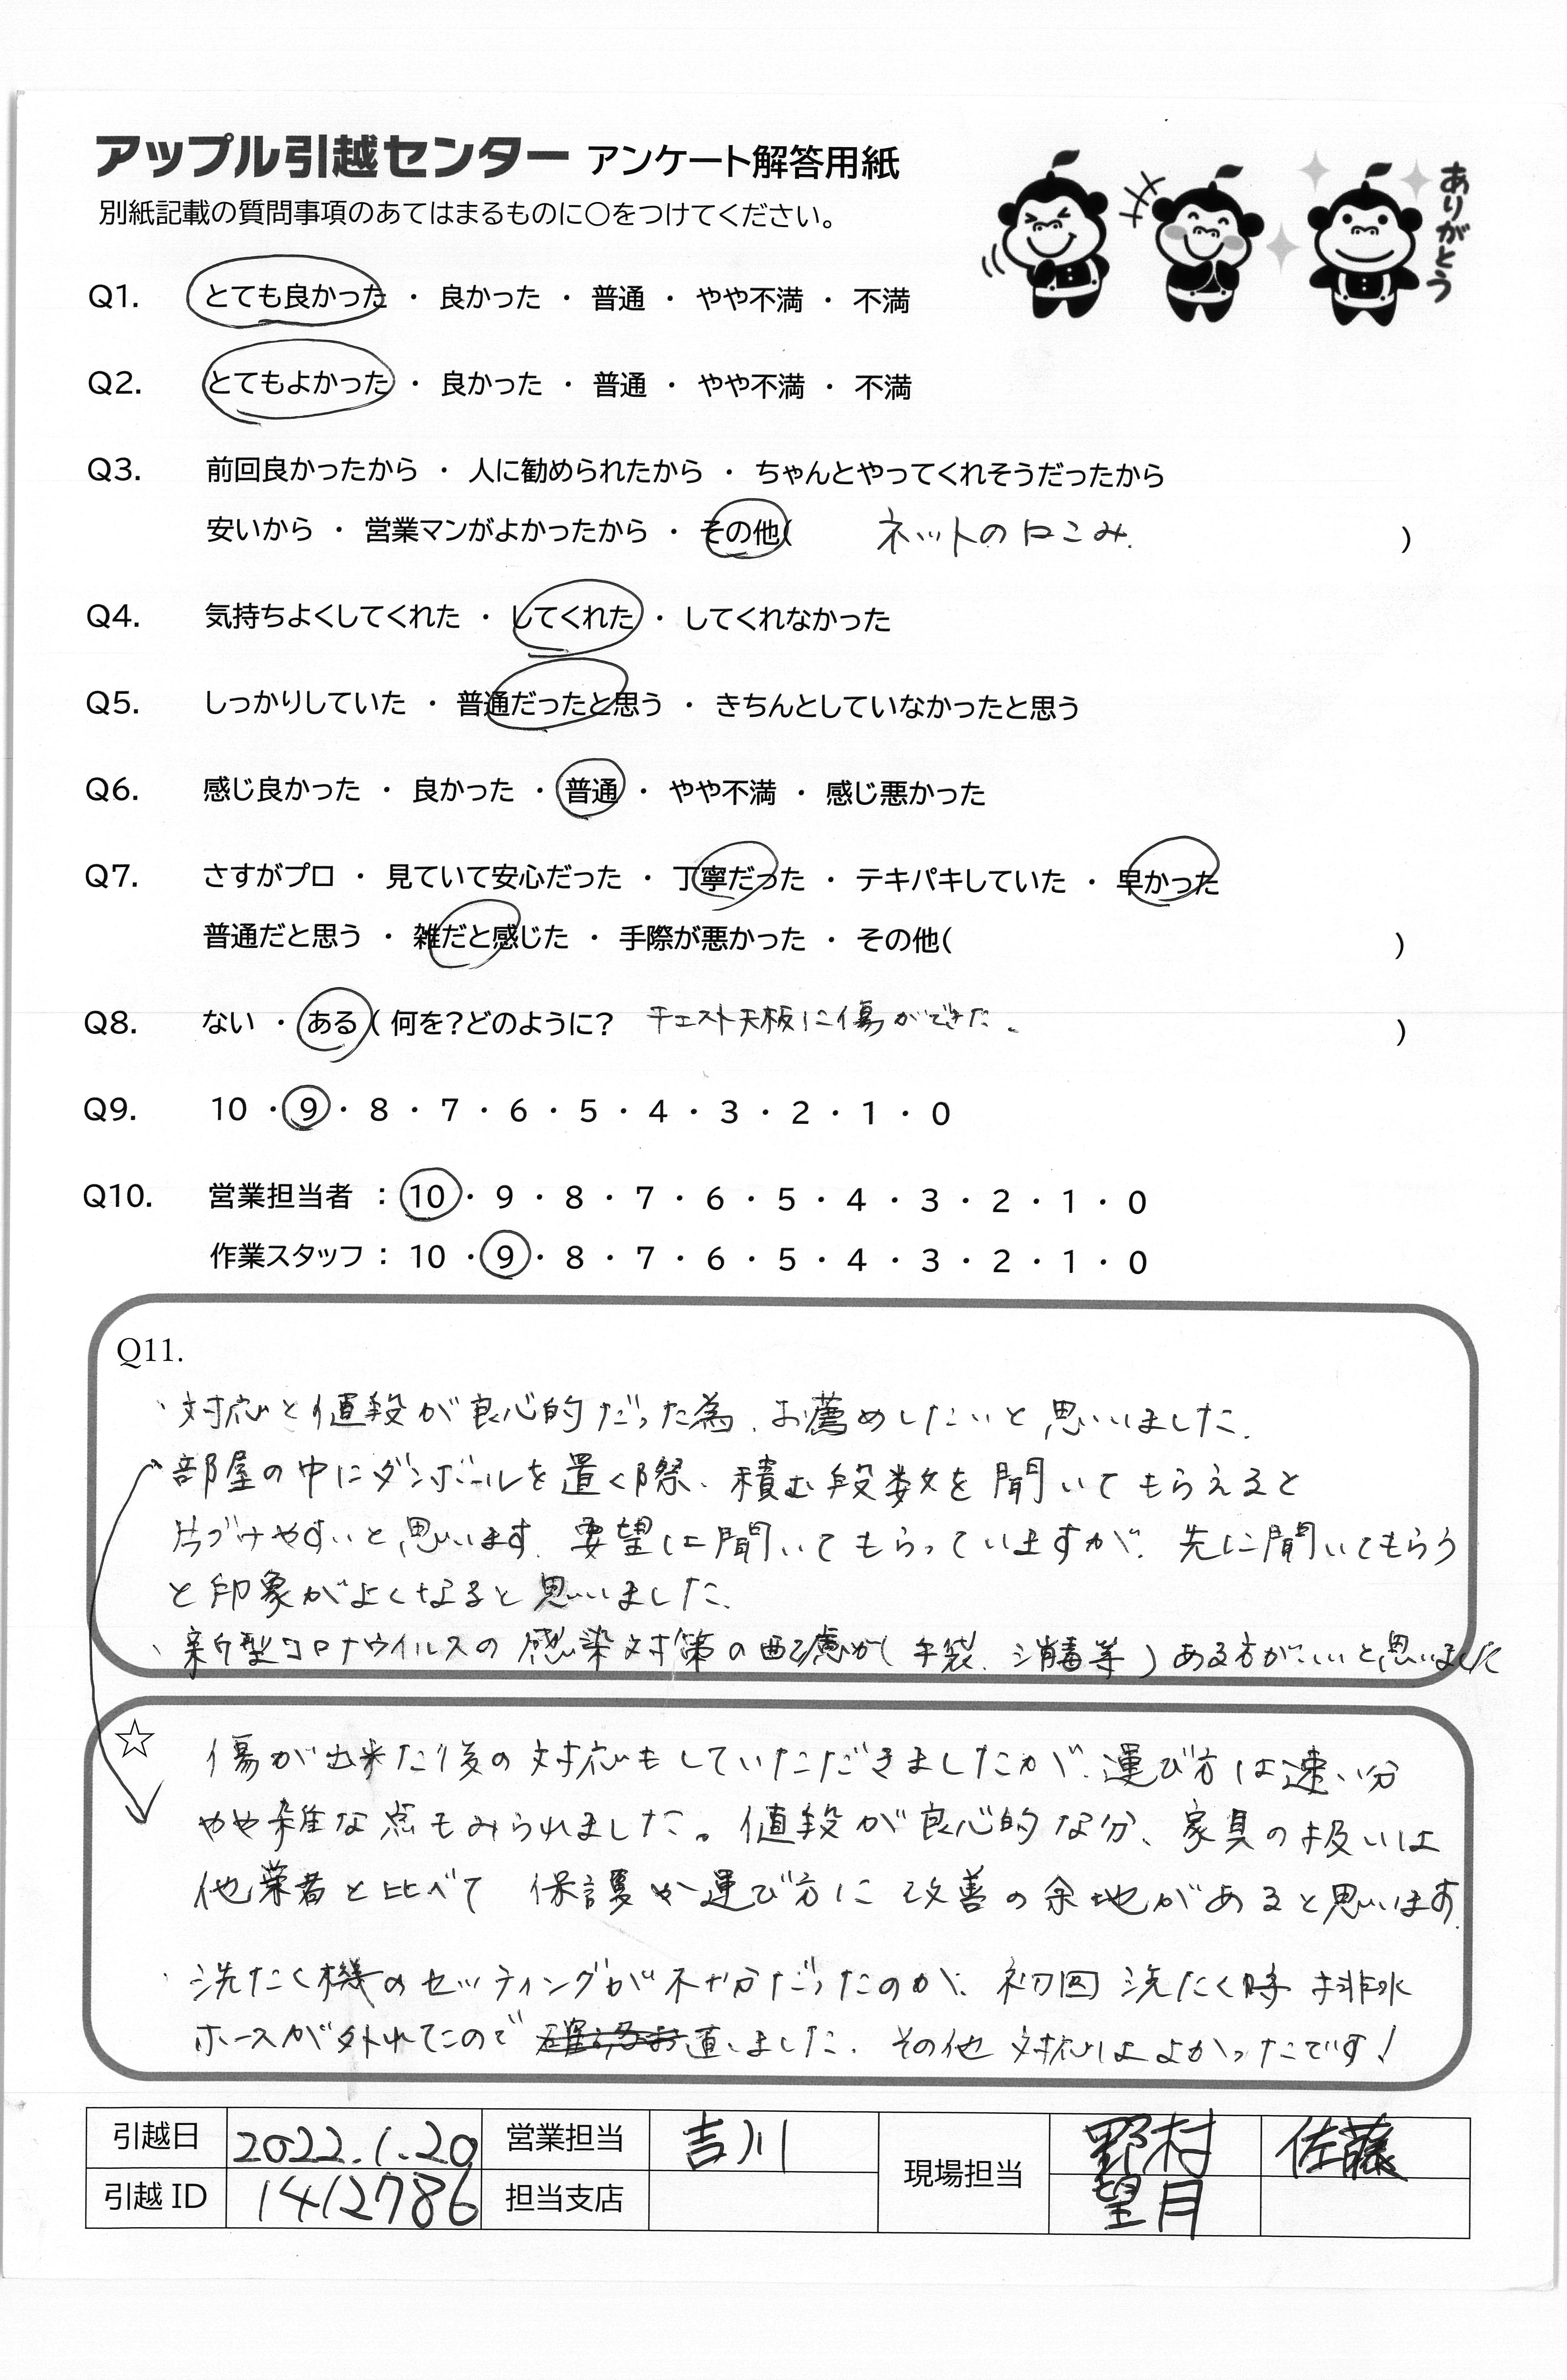 アップル引越センター アンケート解答用紙
別紙記載の質問事項のあてはまるものに〇をつけてください。
ありがとう
Q1. とても良かった ・ 良かった ・ 普通 ・ やや不満 ・ 不満
Q2. とてもよかった ・ 良かった ・ 普通 ・ やや不満 ・ 不満
Q3. 前回良かったから ・ 人に勧められたから ・ ちゃんとやってくれそうだったから
安いから ・ 営業マンがよかったから ・ その他( ネットの口こみ. )
Q4. 気持ちよくしてくれた ・ してくれた ・ してくれなかった
Q5. しっかりしていた ・ 普通だったと思う ・ きちんとしていなかったと思う
Q6. 感じ良かった ・ 良かった ・ 普通 ・ やや不満 ・ 感じ悪かった
Q7. さすがプロ ・ 見ていて安心だった ・ 丁寧だった ・ テキパキしていた ・ 早かった
普通だと思う ・ 雑だと感じた ・ 手際が悪かった ・ その他( )
Q8. ない ・ ある ( 何を?どのように? チェスト天板に傷ができた。 )
Q9. 10 ・ 9 ・ 8 ・ 7 ・ 6 ・ 5 ・ 4 ・ 3 ・ 2 ・ 1 ・ 0
Q10. 営業担当者 : 10 ・ 9 ・ 8 ・ 7 ・ 6 ・ 5 ・ 4 ・ 3 ・ 2 ・ 1 ・ 0
作業スタッフ : 10 ・ 9 ・ 8 ・ 7 ・ 6 ・ 5 ・ 4 ・ 3 ・ 2 ・ 1 ・ 0
Q11.
、対応と値段が良心的だった為、お薦めしたいと思いました.
部屋の中にダンボールを置く際、積む段数を聞いてもらえると
片づけやすいと思います. 要望は聞いてもらっていますが、先に聞いてもらう
と印象がよくなると思いました.
、新型コロナウイルスの感染対策の配慮が(手袋、消毒等)ある方がいいと思いました
☆ 傷が出来た後の対応もしていただきましたが、運び方は速い分
やや雑な点もみられました。値段が良心的な分、家具の扱いは
他業者と比べて 保護や運び方に改善の余地があると思います.
・洗たく機のセッティングが不十分だったのか、初回洗たく時排水
ホースが外れてこので 直しました. その他 対応はよかったです!
引越日 2022.1.20 営業担当 吉川 現場担当 野村 佐藤
引越 ID 1412786 担当支店 望月